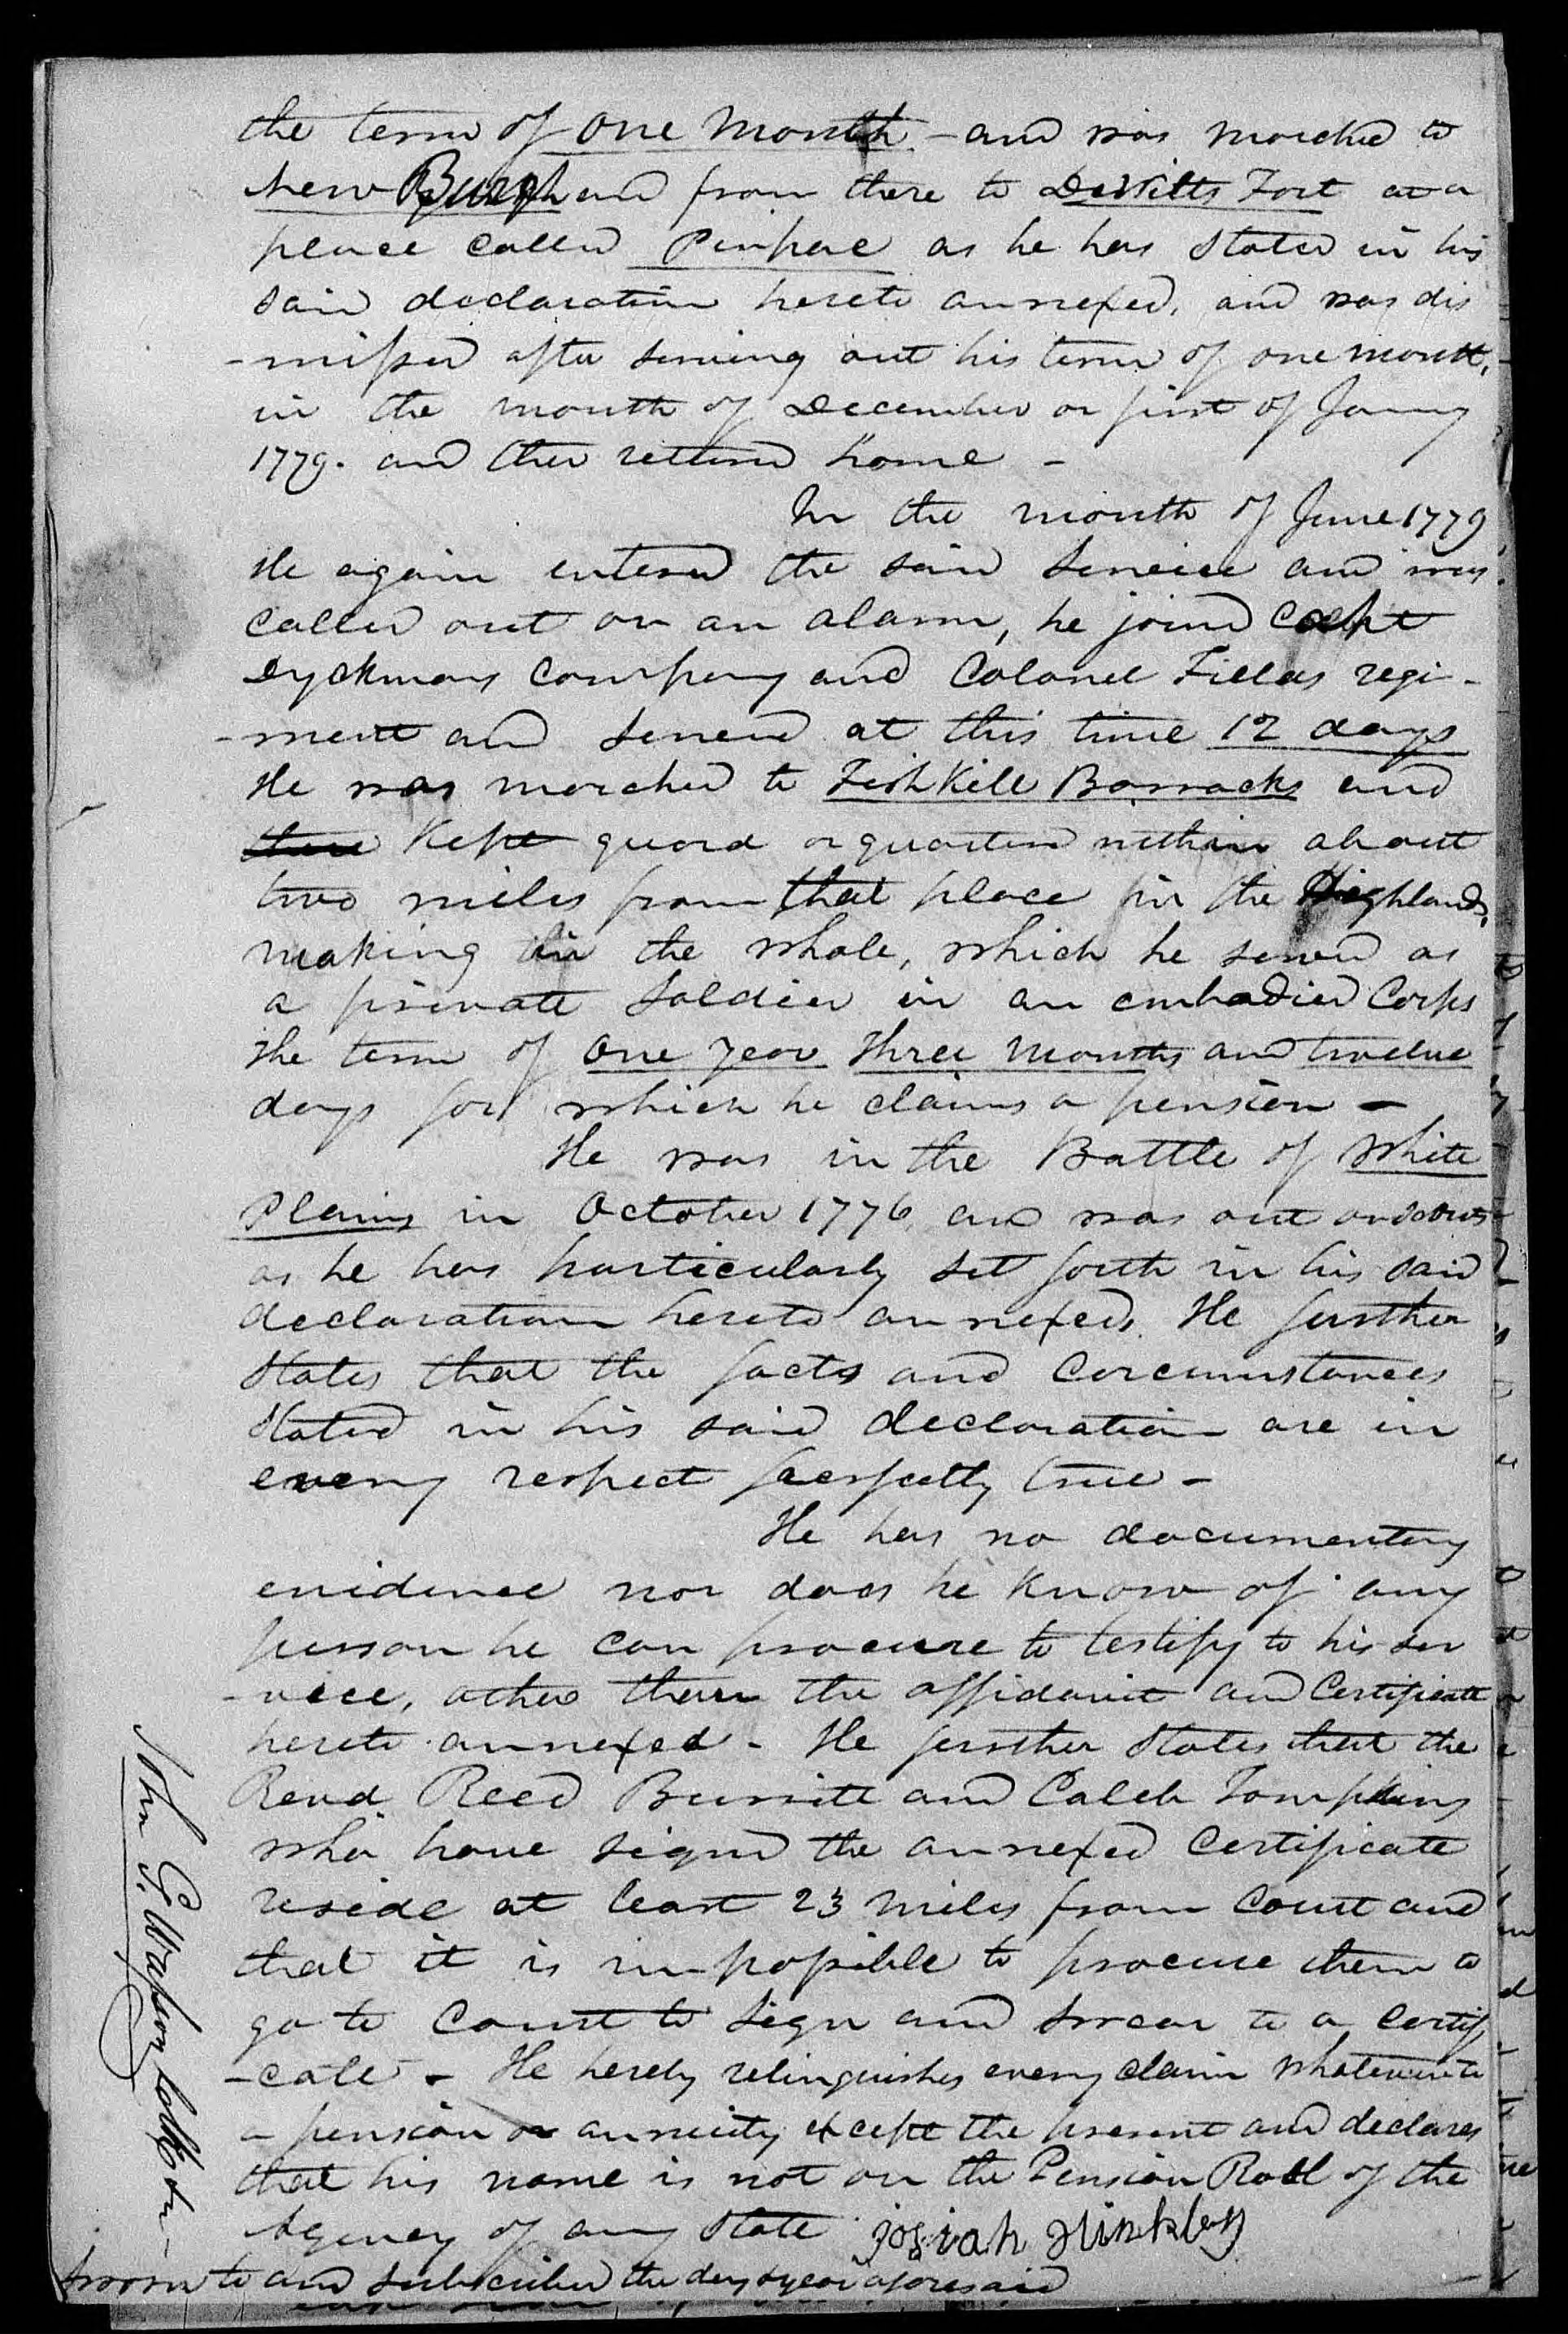 the term of one month - and was marched to
New Burgh and from there to DeWitts Fort at a
place called Pinpack as he has stated in his
said declaration hereto annexed, and was dis
-missed after serving out his term of one month,
in the month of December or first of Jany
1779. and then returned home -
In the month of June 1779
He again entered the said Service and was
called out on an alarm, he joined Capt
Dyckmans Company and Colonel Fields regi-
-ment and served at this time 12 days
He was marched to Fishkill Barracks and
there Kept guard or quartered within about
two miles from that place in the Highlands,
making in the whole, which he served as
a private Soldier in an embodied Corps
the term of one year three months and twelve
days for which he claims a pension -
He was in the Battle of White
Plains in October 1776, and was out on scouts
as he has particularly set forth in his said
declaration hereto annexed. He further
States that the facts and Circumstances
Stated in his said declaration are in
every respect perfectly true -
He has no documentary
evidence nor does he know of any
person he can procure to testify to his ser
-vice, other than the affidavit and Certificate
hereto annexed - He further States that the
Revd Reed Burritt and Caleb Tompkins
who have signed the annexed Certificate
reside at least 23 miles from Court and
that it is impossible to procure them to
go to Court to Sign and Swear to a Certifi
-cate - He hereby relinquishes every claim whatever to
a pension or annuity except the present and declares
that his name is not on the Pension Roll of the
Agency of any State josiah Hinkley
Sworn to and Subscribed the day & year aforesaid
John G.